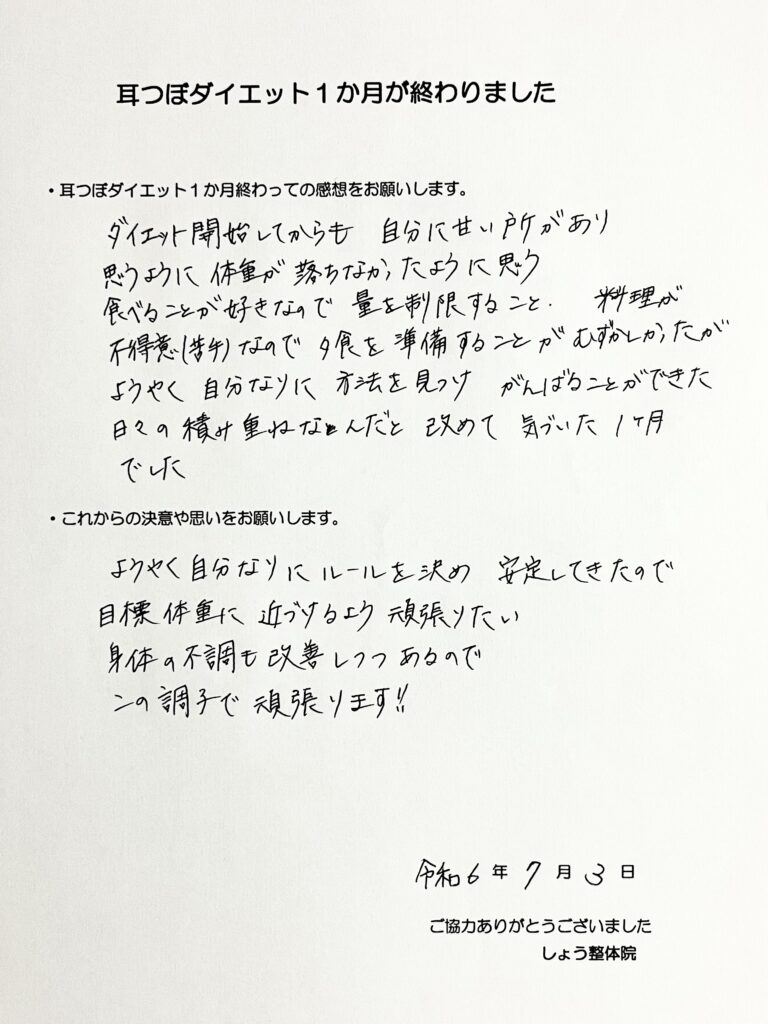 耳つぼダイエット１か月が終わりました
・耳つぼダイエット１か月終わっての感想をお願いします。
ダイエット開始してからも 自分に甘い所があり
思うように 体重が 落ちなかったように思う
食べることが好きなので 量を制限すること. 料理が
不得意(苦手)なので 夕食を 準備することが むずかしかったが
ようやく 自分なりに 方法を見つけ がんばることができた
日々の積み重ねなんだと 改めて 気づいた 1ヶ月
でした
・これからの決意や思いをお願いします。
ようやく自分なりに ルールを決め 安定してきたので
目標体重に 近づけるよう 頑張りたい
身体の不調も改善しつつあるので
この調子で 頑張ります!!
令和6年7月3日
ご協力ありがとうございました
しょう整体院